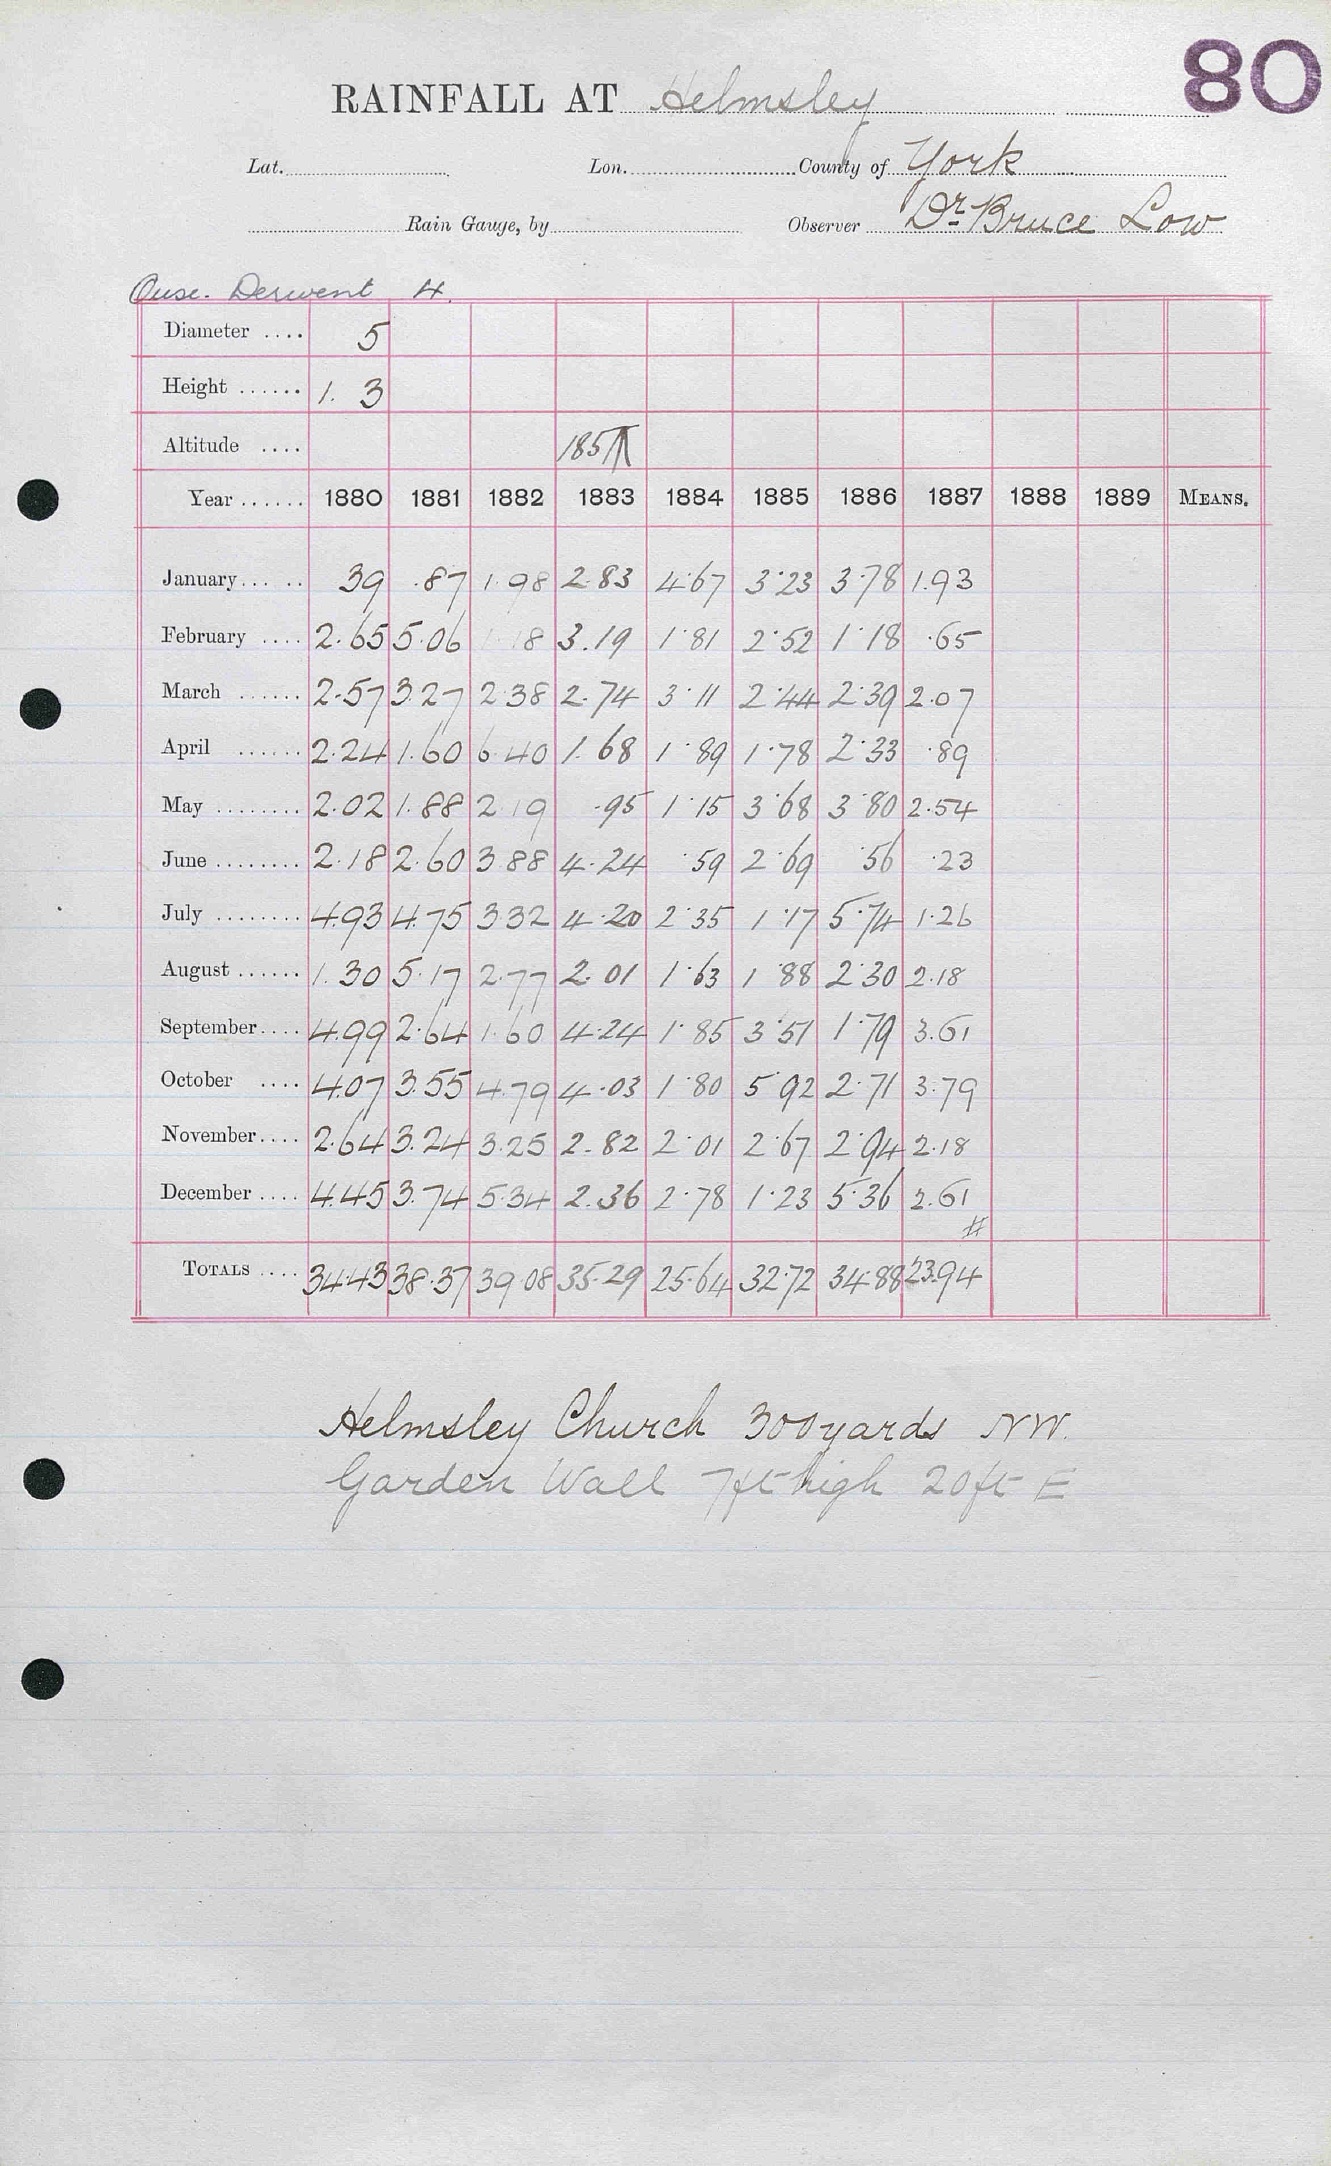 80
RAINFALL AT Helmsley
Lat. Lon. County of York
Rain Gauge, by Observer Dr. Bruce Low
Ouse. Derwent 4.
Diameter .... 5
Height ...... 1. 3
Altitude .... 185
Year ...... 1880 1881 1882 1883 1884 1885 1886 1887 1888 1889 MEANS.
January... .. 39 .87 1.98 2.83 4.67 3.23 3.78 1.93
February .... 2.65 5.06 1.18 3.19 1.81 2.52 1.18 .65
March ...... 2.57 3.27 2.38 2.74 3.11 2.44 2.39 2.07
April ...... 2.24 1.60 6.40 1.68 1.89 1.78 2.33 .89
May ........ 2.02 1.88 2.19 .95 1.15 3.68 3.80 2.54
June ........ 2.18 2.60 3.88 4.24 .59 2.69 .56 .23
July ........ 4.93 4.75 3.32 4.20 2.35 1.17 5.74 1.26
August ...... 1.30 5.17 2.77 2.01 1.63 1.88 2.30 2.18
September.... 4.99 2.64 1.60 4.24 1.85 3.51 1.79 3.61
October .... 4.07 3.55 4.79 4.03 1.80 5.92 2.71 3.79
November.... 2.64 3.24 3.25 2.82 2.01 2.67 2.94 2.18
December .... 4.45 3.74 5.34 2.36 2.78 1.23 5.36 2.61
#
TOTALS .... 34.43 38.37 39.08 35.29 25.64 32.72 34.88 23.94
Helmsley Church 300 yards NW.
Garden Wall 7ft high 20ft E